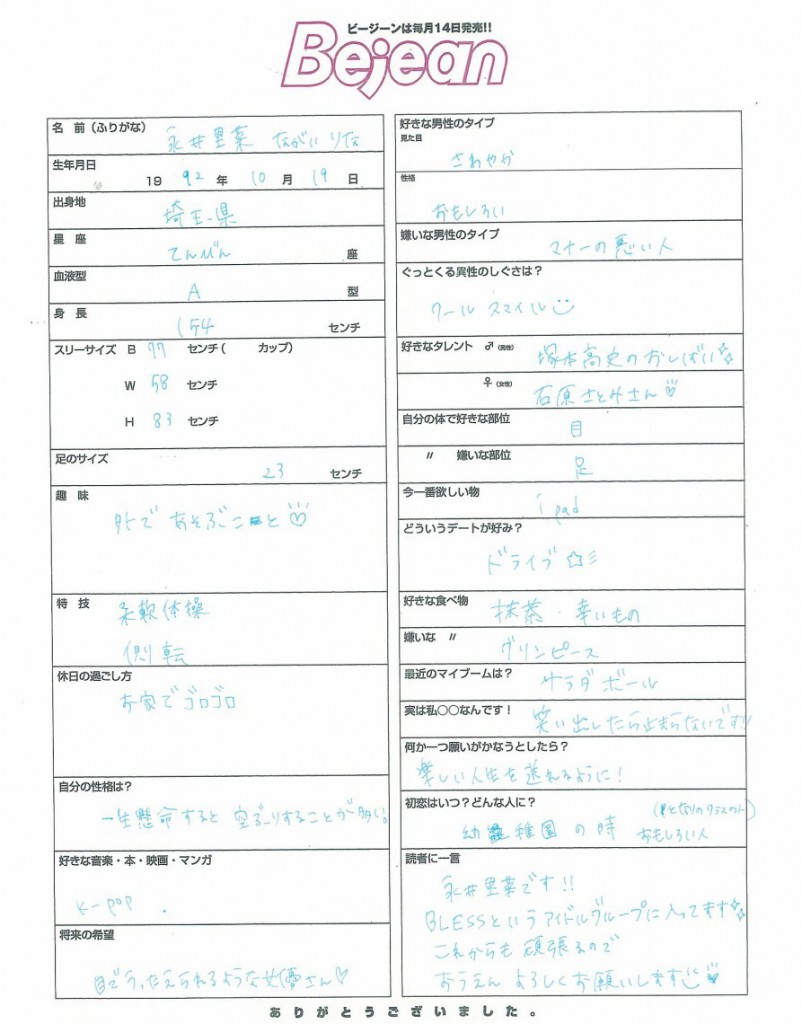 ビージーンは毎月14日発売!!
Bejean
名 前（ふりがな）
永井里菜 ながい りな
生年月日
19 92 年 10 月 19 日
出身地
埼玉県
星 座
てんびん 座
血液型
A 型
身 長
154 センチ
スリーサイズ B 77 センチ( カップ)
W 58 センチ
H 83 センチ
足のサイズ
23 センチ
趣 味
外で あそぶこと♡
特 技
柔軟体操
側転
休日の過ごし方
お家でゴロゴロ
自分の性格は？
一生懸命すると 空ぶりすることが多い。
好きな音楽・本・映画・マンガ
K-POP.
将来の希望
目でうったえられるような女優さん♡
好きな男性のタイプ
見た目
さわやか
性格
おもしろい
嫌いな男性のタイプ
マナーの悪い人
ぐっとくる異性のしぐさは？
クール スマイル
好きなタレント ♂（男性）
塚本高史のおしばい☆
♀（女性）
石原さとみさん♡
自分の体で好きな部位
目
〃 嫌いな部位
足
今一番欲しい物
ipad
どういうデートが好み？
ドライブ☆
好きな食べ物
抹茶・辛いもの
嫌いな 〃
グリンピース
最近のマイブームは？
サラダボール
実は私○○なんです！
笑い出したら止まらないです!!
何か一つ願いがかなうとしたら？
楽しい人生を送れるように！
初恋はいつ？どんな人に？
幼稚園の時 (となりのクラスの人)
おもしろい人
読者に一言
永井里菜です!!
BLESSというアイドルグループに入ってます☆
これからも頑張るので
おうえん よろしくお願いします♡
ありがとうございました。